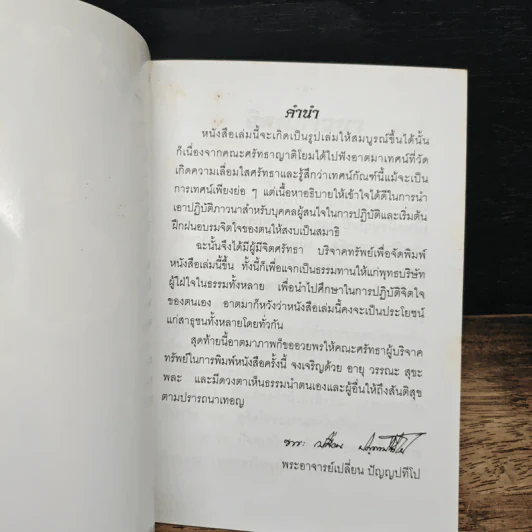 คำนำ
หนังสือเล่มนี้จะเกิดเป็นรูปเล่มให้สมบูรณ์ขึ้นได้นั้น
ก็เนื่องจากคณะศรัทธาญาติโยมได้ไปฟังอาตมาเทศน์ที่วัด
เกิดความเลื่อมใสศรัทธาและรู้สึกว่าเทศน์กัณฑ์นี้แม้จะเป็น
การเทศน์เพียงย่อ ๆ แต่เนื้อหาอธิบายให้เข้าใจได้ดีในการนำ
เอาปฏิบัติภาวนาสำหรับบุคคลผู้สนใจในการปฏิบัติและเริ่มต้น
ฝึกฝนอบรมจิตใจของตนให้สงบเป็นสมาธิ
ฉะนั้นจึงได้มีผู้มีจิตศรัทธา บริจาคทรัพย์เพื่อจัดพิมพ์
หนังสือเล่มนี้ขึ้น ทั้งนี้ก็เพื่อแจกเป็นธรรมทานให้แก่พุทธบริษัท
ผู้ใฝ่ใจในธรรมทั้งหลาย เพื่อนำไปศึกษาในการปฏิบัติจิตใจ
ของตนเอง อาตมาก็หวังว่าหนังสือเล่มนี้คงจะเป็นประโยชน์
แก่สาธุชนทั้งหลายโดยทั่วกัน
สุดท้ายนี้อาตมาภาพก็ขออวยพรให้คณะศรัทธาผู้บริจาค
ทรัพย์ในการพิมพ์หนังสือครั้งนี้ จงเจริญด้วย อายุ วรรณะ สุขะ
พละ และมีดวงตาเห็นธรรมนำตนเองและผู้อื่นให้ถึงสันติสุข
ตามปรารถนาเทอญ
พระอาจารย์เปลี่ยน ปัญญปทีโป